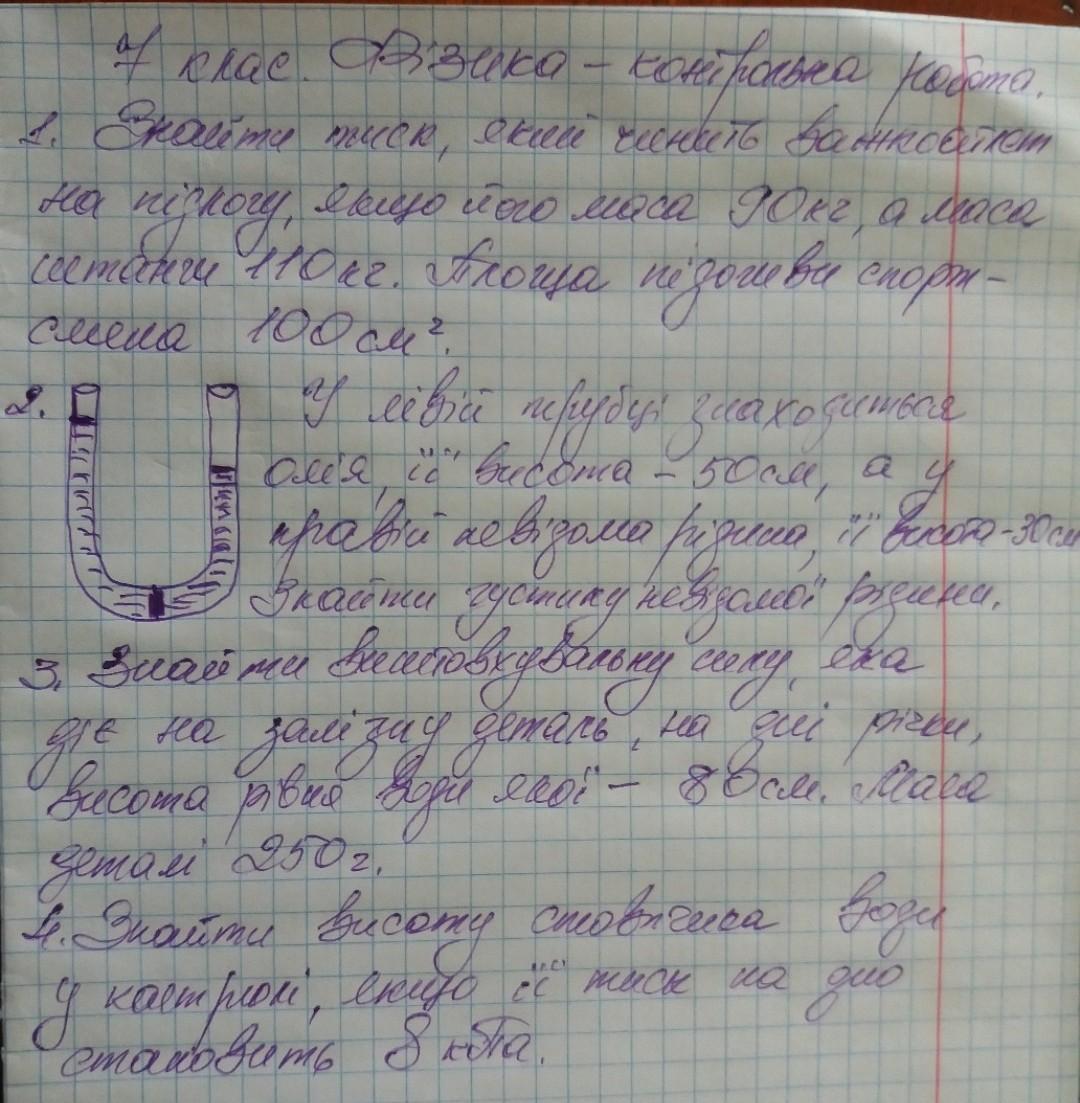 7 клас. Фізика – контрольна робота.
1. Знайти тиск, який чинить важкоатлет
на підлогу, якщо його маса 90кг, а маса
штанги 110кг. Площа підошви спорт-
смена 100см².
2. У лівій трубці знаходиться
олія, її висота – 50см, а у
правій невідома рідина, її висота – 30см
Знайти густину невідомої рідини.
3. Знайти виштовхувальну силу, яка
діє на залізну деталь, на дні річки,
висота рівня води якої – 80см. Маса
деталі 250г.
4. Знайти висоту стовпчика води
у каструлі, якщо її тиск на дно
становить 8 кПа.